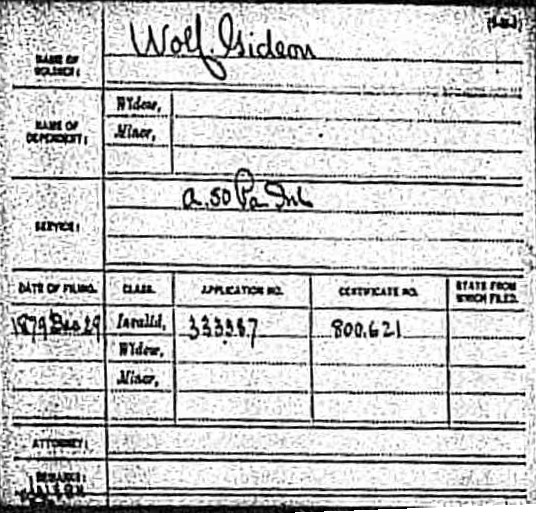 Wolf, Gideon
NAME OF SOLDIER:
NAME OF DEPENDENT:
Widow,
Minor,
SERVICE:
A. 50 Pa Inf
DATE OF FILING. CLASS. APPLICATION NO. CERTIFICATE NO. STATE FROM WHICH FILED.
1879 Dec 29 Invalid, 333387 800.621
Widow,
Minor,
ATTORNEY:
REMARKS: